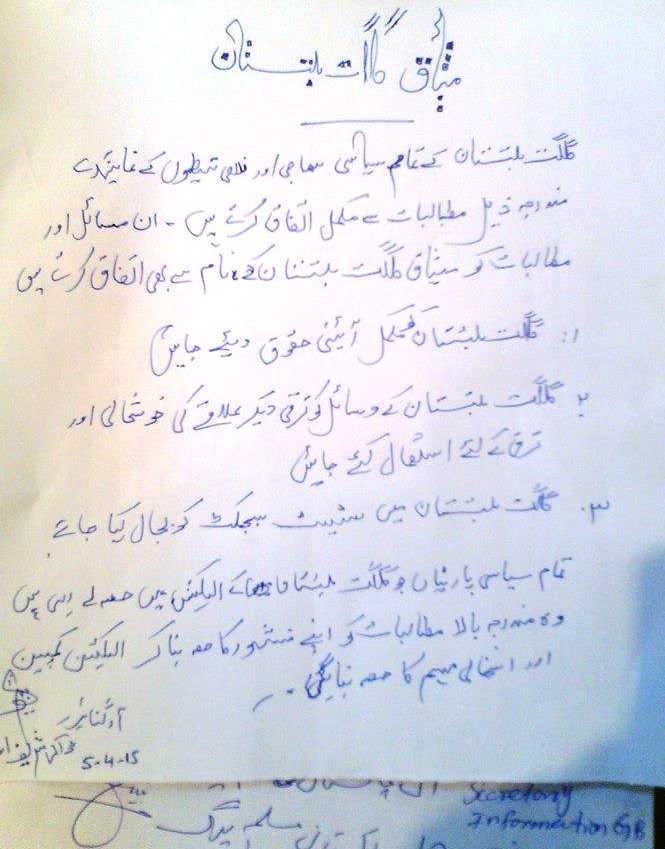 میثاق گلگت بلتستان
گلگت بلتستان کے تمام سیاسی سماجی اور فلاحی تنظیموں کے نمایندے
مندرجہ ذیل مطالبات سے مکمل اتفاق کرتے ہیں - ان مسائل اور
مطالبات کو میثاق گلگت بلتستان کے نام سے بھی اتفاق کرتے ہیں
۱: گلگت بلتستان کو مکمل آئینی حقوق دیئے جایں
۲ گلگت بلتستان کے وسائل کو ترقی دیکر علاقے کی خوشحالی اور
ترقی کے لئے استعمال کئے جایں
۳. گلگت بلتستان میں سٹیٹ سبجکٹ کو بحال کیا جاۓ
تمام سیاسی پارٹیاں جو گلگت بلتستان کے الیکشن میں حصہ لے رہی ہیں
وہ مندرجہ بالا مطالبات کو اپنے منشور کا حصہ بنا کر الیکشن کمپین
اور انتخابی مہیم کا حصہ بنایں گی -
آرگنائزر
5-4-15
Secretary
Information GB
مسلم لیگ